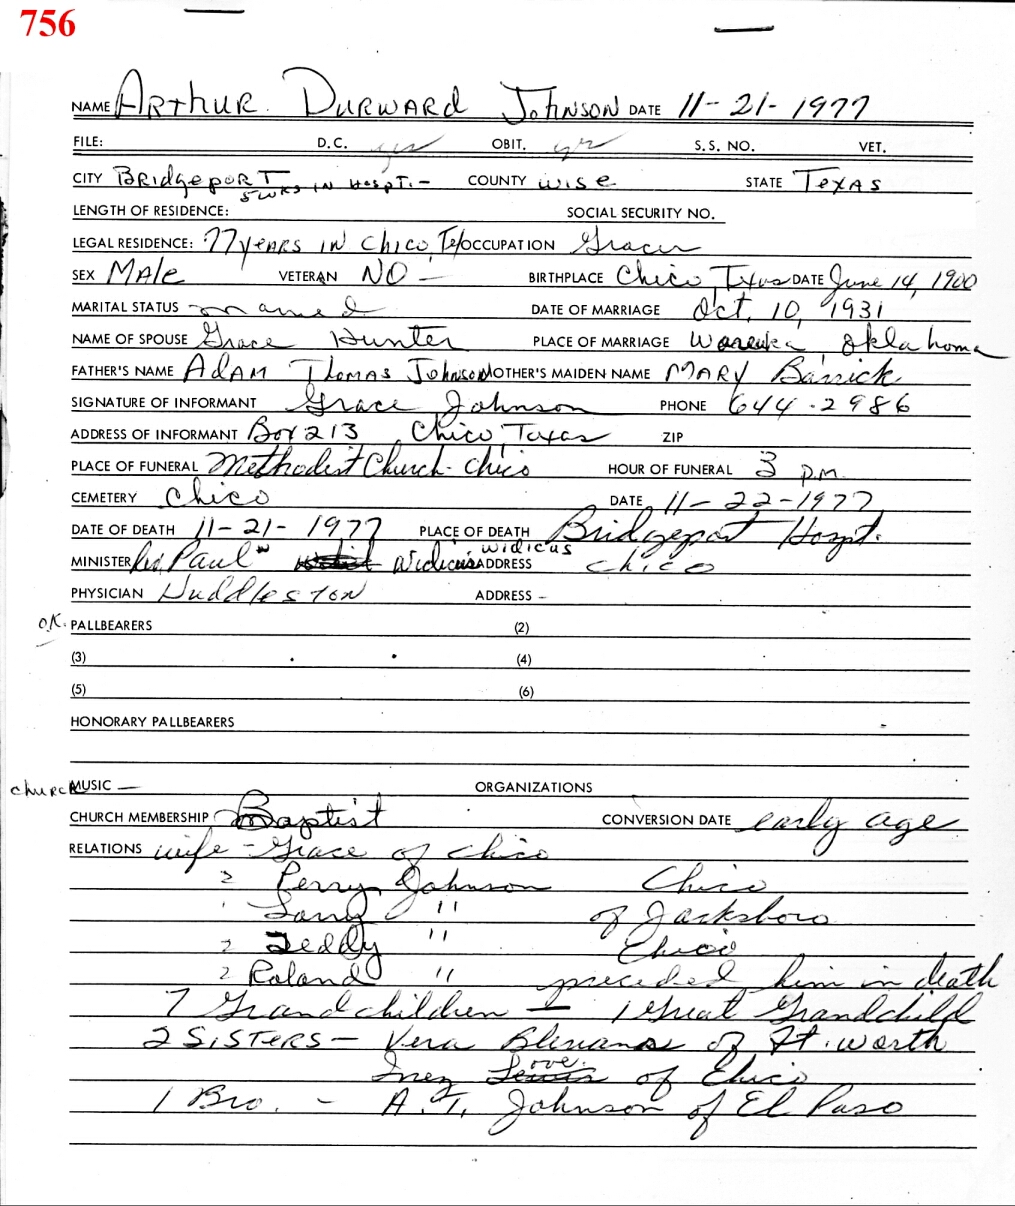 756
NAME Arthur Durward Johnson DATE 11-21-1977
FILE: D.C. yes OBIT. yes S.S. NO. VET.
CITY Bridgeport COUNTY Wise STATE Texas
5 wks in Hospt. -
LENGTH OF RESIDENCE: SOCIAL SECURITY NO.
LEGAL RESIDENCE: 77 years in Chico, Tex OCCUPATION Grocer
SEX Male VETERAN NO - BIRTHPLACE Chico, Texas DATE June 14, 1900
MARITAL STATUS married DATE OF MARRIAGE Oct. 10, 1931
NAME OF SPOUSE Grace Hunter PLACE OF MARRIAGE Oklahoma
FATHER'S NAME Adam Thomas Johnson MOTHER'S MAIDEN NAME Mary Barrick
SIGNATURE OF INFORMANT Grace Johnson PHONE 644-2986
ADDRESS OF INFORMANT Box 213 Chico, Texas ZIP
PLACE OF FUNERAL Methodist Church - Chico HOUR OF FUNERAL 3 p.m.
CEMETERY Chico DATE 11-22-1977
DATE OF DEATH 11-21-1977 PLACE OF DEATH Bridgeport Hospt.
MINISTER Rev. Paul Widicus widicus ADDRESS Chico
PHYSICIAN Huddleston ADDRESS -
O.K. PALLBEARERS (2)
(3) (4)
(5) (6)
HONORARY PALLBEARERS
church MUSIC — ORGANIZATIONS
CHURCH MEMBERSHIP Baptist CONVERSION DATE early age
RELATIONS wife - Grace of Chico
2 Perry Johnson Chico
1 Larry " of Jacksboro
2 Teddy " Chico
2 Roland " preceded him in death
7 Grandchildren - 1 Great Grandchild
2 Sisters - Vera of Ft. Worth
Inez Love of Chico
1 Bro. - A.T. Johnson of El Paso